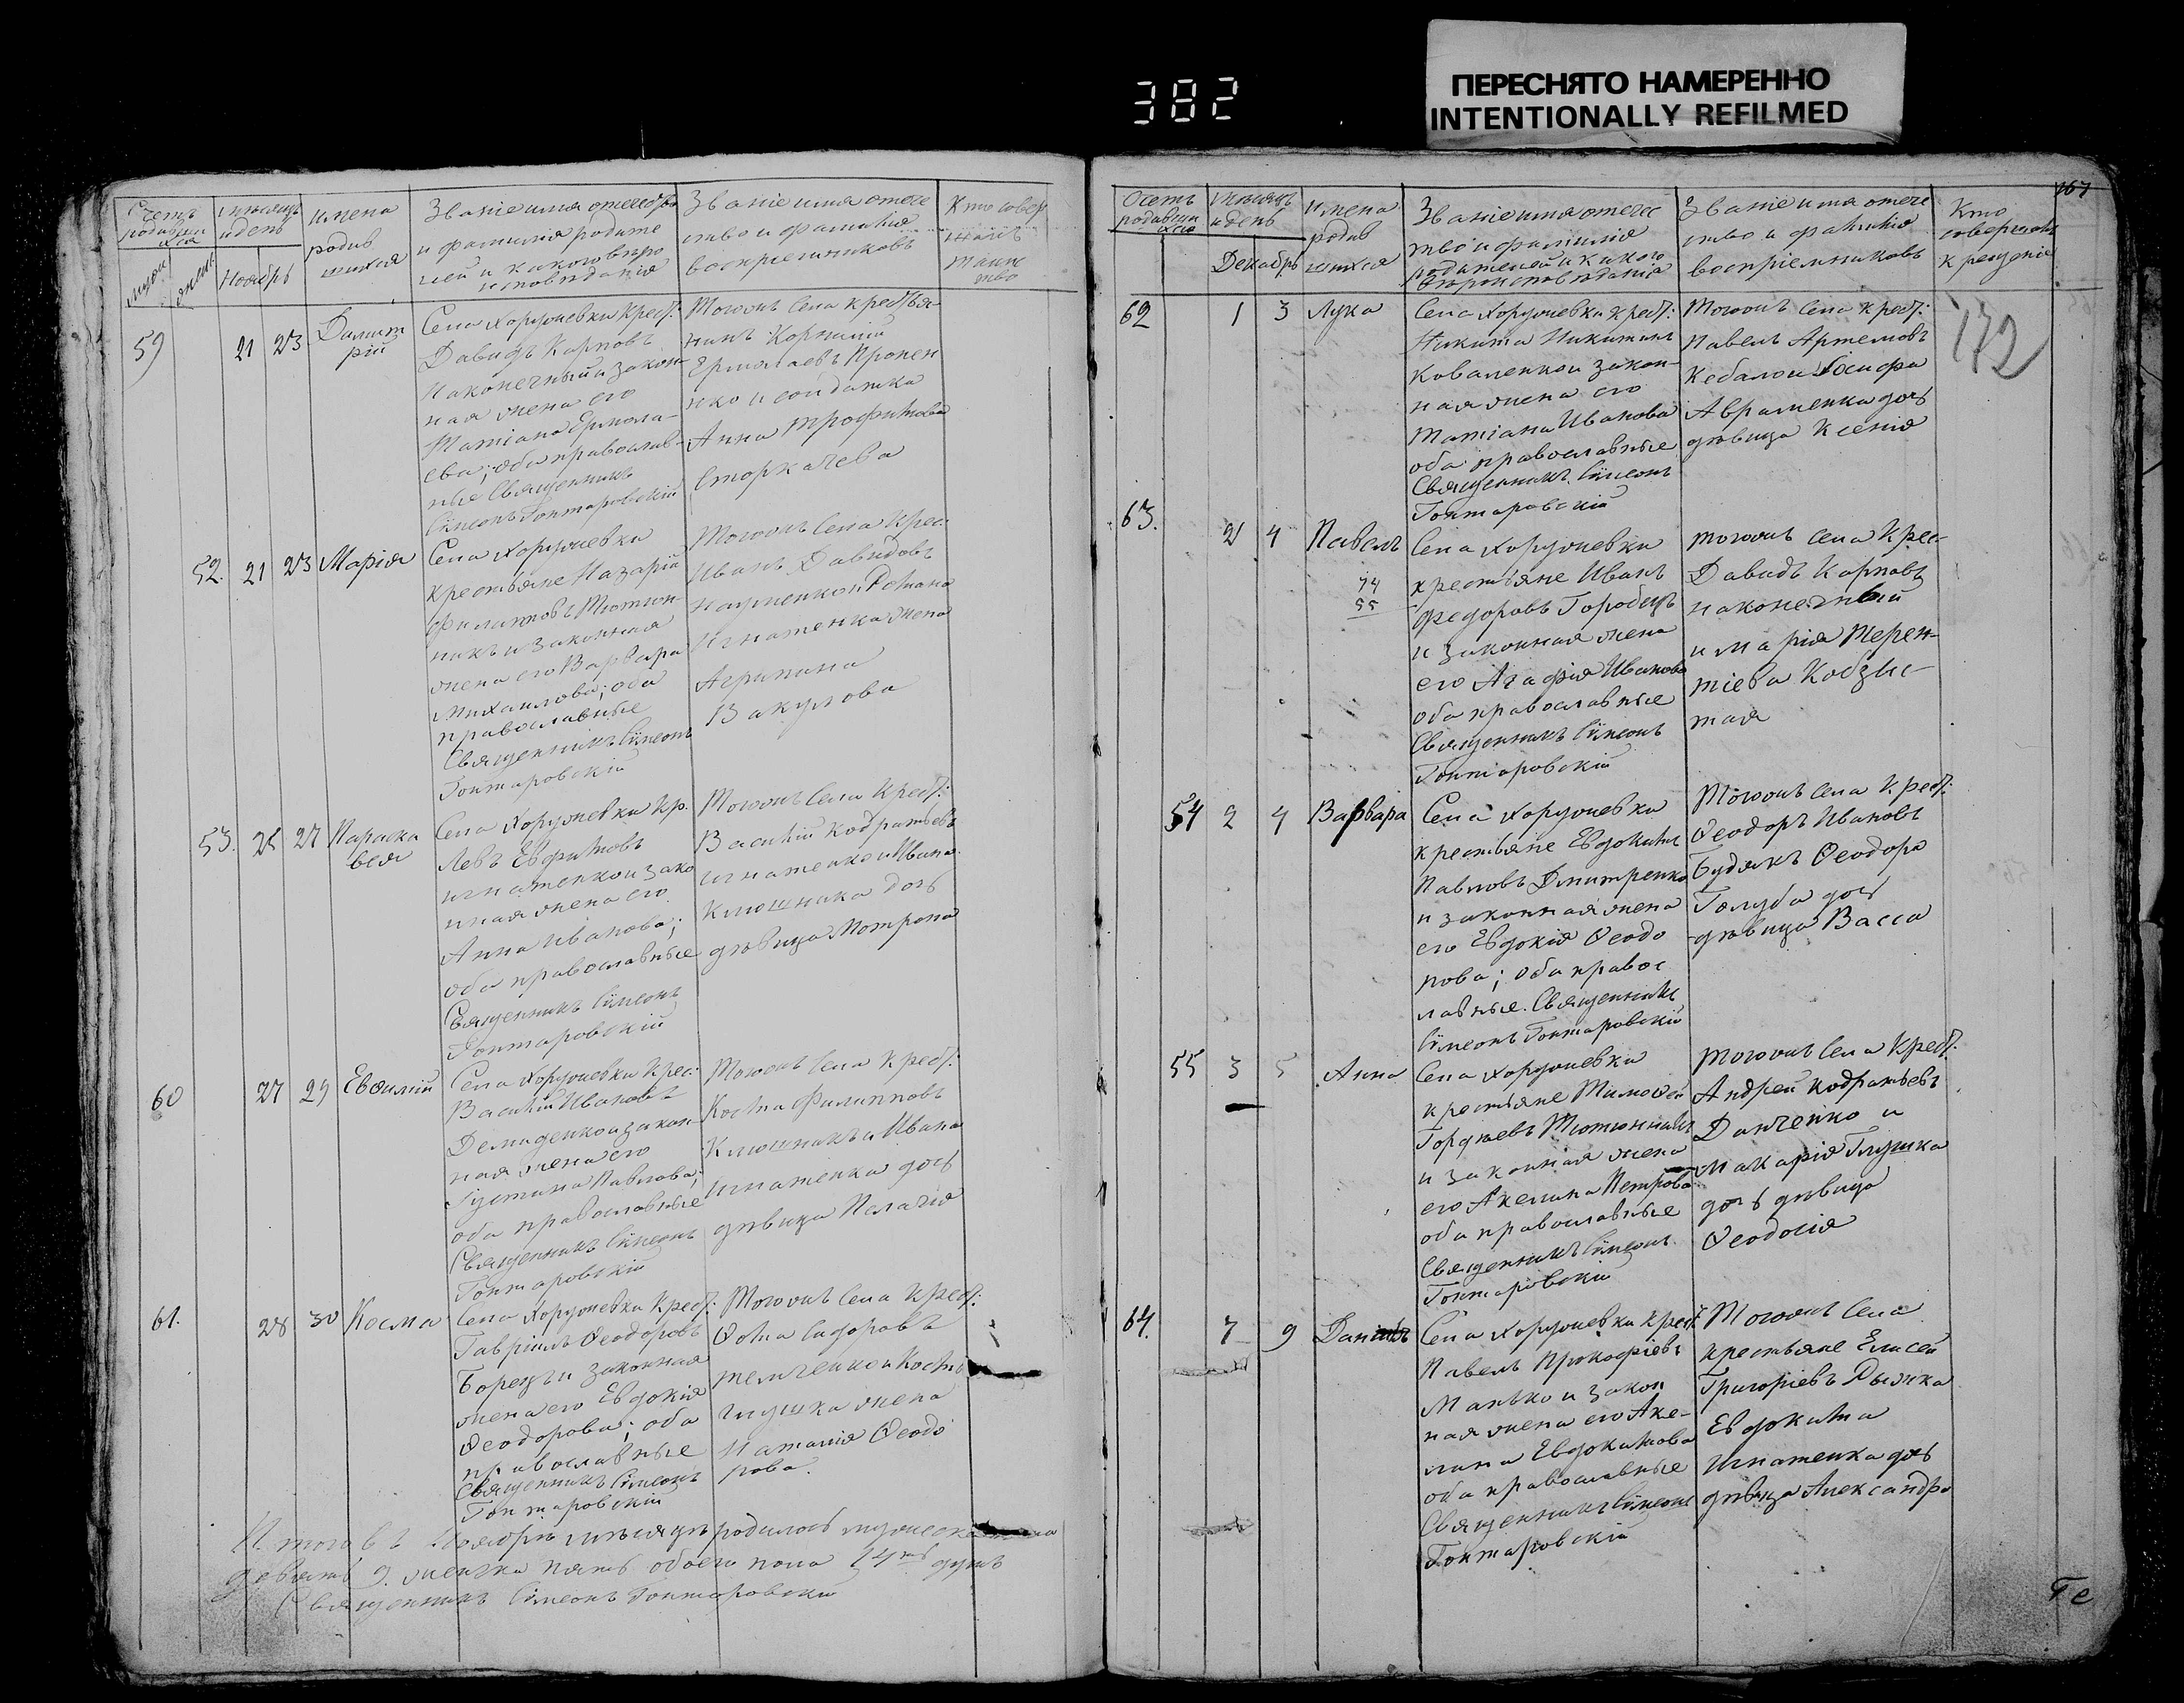 382
ПЕРЕСНЯТО НАМЕРЕННО
INTENTIONALLY REFILMED
Счетъ родившихся
мѣсяцъ и день
Ноябрь
имена родившихся
Званіе имя отечество
и фамилія родите
лей и какого вѣро
исповѣданія
Званіе имя отече
ство и фамилія
воспріемниковъ
Кто совер
шалъ
таин
ство
59
21 23
Димит
рій
Села Хоружевки крест:
Давидъ Карповъ
Наконечный и закон
ная жена его
Татіана Ермола-
ева; оба православ-
ные Священникъ
Симеонъ Гонтаровскій
Тогожъ села крестья
нинъ Корнилій
Ермолаевъ Пронен
нко и солдатка
Анна Трофимова
Сторкачева
52. 21 23 Марія
Села Хоружевки
крестьяне Назарій
Филиповъ Тютюн-
никъ и законная
жена его Варвара
Михаилова; оба
православные
Священникъ Симеонъ
Гонтаровскій
Тогожъ села крес:
Иванъ Давидовъ
Науменко и Романа
Игнатенка жена
Агрипина
Вакулова
53. 25 27 Параске
вея
Села Хоружевки кр.
Левъ Евфимовъ
Игнатенко и зако
нная жена его
Анна Иванова;
оба православные
Священникъ Симеонъ
Гонтаровскій
Тогожъ села крест:
Василій Кодратьевъ
Игнатенко и Ивана
Клюшника дочь
дѣвица Мотрона
60 27 29 Евфимій
Села Хоружевки крес:
Василій Ивановъ
Демиденко и закон
ная жена его
Іустина Павлова;
оба православные
Священникъ Симеонъ
Гонтаровскій
Тогожъ села крест:
Козма Филипповъ
Клюшникъ и Ивана
Игнатенка дочь
дѣвица Пелагія
61. 28 30 Косма
Села Хоружевки крест:
Гавріилъ Ѳеодоровъ
Борецъ и законная
жена его Евдокія
Ѳеодорова; оба
православные
Священникъ Симеонъ
Гонтаровскій
Тогожъ села крест:
Ѳома Сидоровъ
Темченко и Косми
Глушка жена
Наталія Ѳеодо
рова.
Итого въ Ноябрѣ мѣсяцѣ родилось мужеска пола
девять 9. женска пять обоего пола 14ть душъ
Священникъ Симеонъ Гонтаровскій
167
Счетъ
родивши
хся
мѣсяцъ
и день
Декабрь
имена
родив
шихся
Званіе имя отече
тво и фамилія
родителей и какого
вѣроисповѣданія
Званіе имя отече
ство и фамилія
воспріемниковъ
Кто
совершалъ
крещеніе
172
62 1 3 Лука
Села Хоружевки крест:
Никита Никитинъ
Коваленко и закон-
ная жена его
Татіана Иванова
оба православные
Священникъ Симеонъ
Гонтаровскій
Тогожъ села крест:
Павелъ Артемовъ
Кебало и Іосифа
Авраменка дочь
дѣвица Ксенія
63. 2 4 Павелъ
Села Хоружевки
крестьяне Иванъ
Федоровъ Горобецъ
и законная жена
его Агафія Иванова
оба православные
Священникъ Симеонъ
Гонтаровскій
Тогожъ села крес-
Давидъ Карповъ
Наконечный
и Марія Терен-
тіева Кобзис-
тая
54 2 4 Варвара
Села Хоружевки
крестьяне Евдокимъ
Павловъ Дмитренко
и законная жена
его Евдокія Ѳеодо
рова; оба правос
лавные. Священникъ
Симеонъ Гонтаровскій
Тогожъ села крест:
Ѳеодоръ Ивановъ
Будякъ Ѳеодора
Голуба дочь
дѣвица Васса
55 3 5 Анна
Села Хоружевки
крестьяне Тимоѳей
Гордѣевъ Тютюнникъ
и законная жена
его Акелина Петрова
оба православные
Священникъ Симеонъ
Гонтаровскій
Тогожъ села крест:
Андрей Кодратьевъ
Данченко и
Макарія Глушка
дочь дѣвица
Ѳеодосія
64. 7 9
Села Хоружевки крест:
Павелъ Прокофіевъ
Манько и закон
ная жена его Аке-
лина Евдокимова
оба православные
Священникъ Симеонъ
Гонтаровскій
Тогожъ села
крестьяне Елисей
Григоріевъ Рыжка
Евдокима
Игнатенка дочь
дѣвица Александра